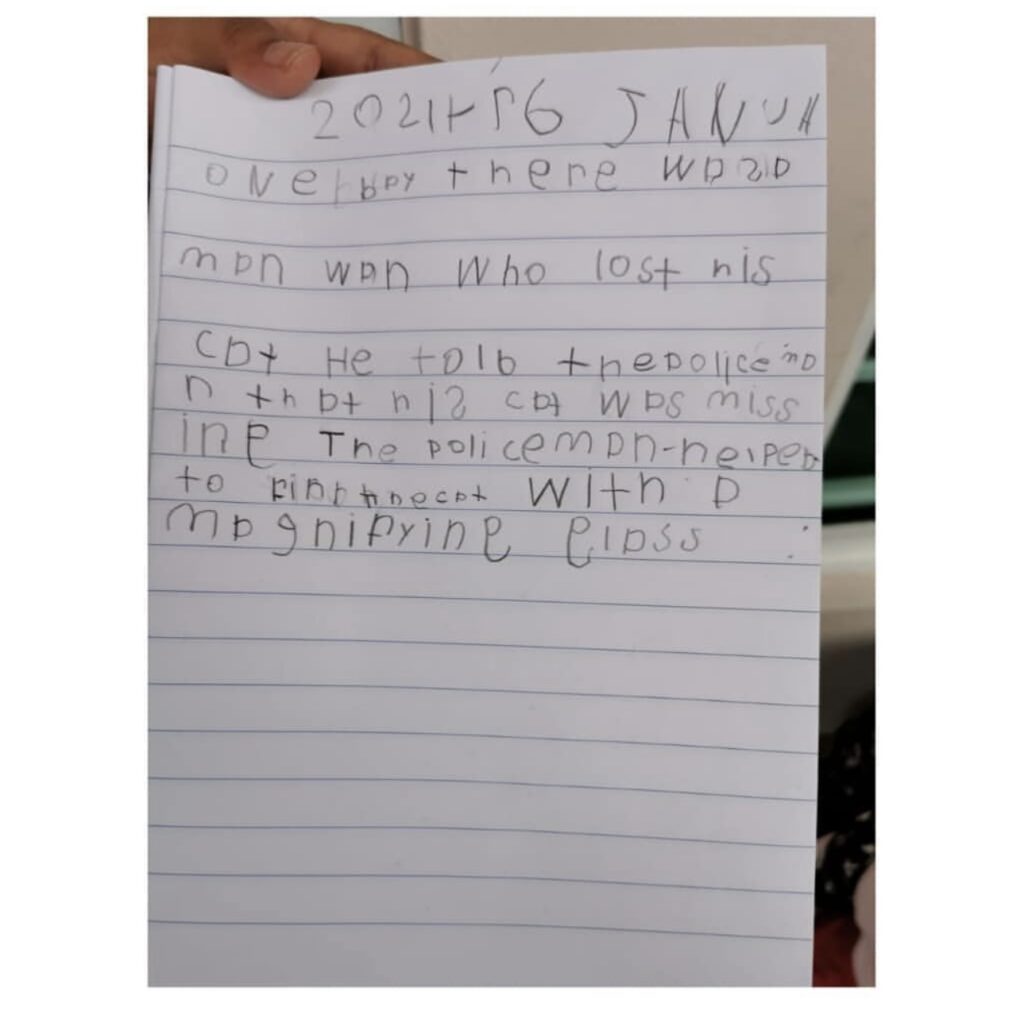 2021 16 JANUA
ONe day there was a
man wan Who lost his
cat He told the policema
n that his cat was miss
ing The policeman helped
to find the cat With a
magnifying glass